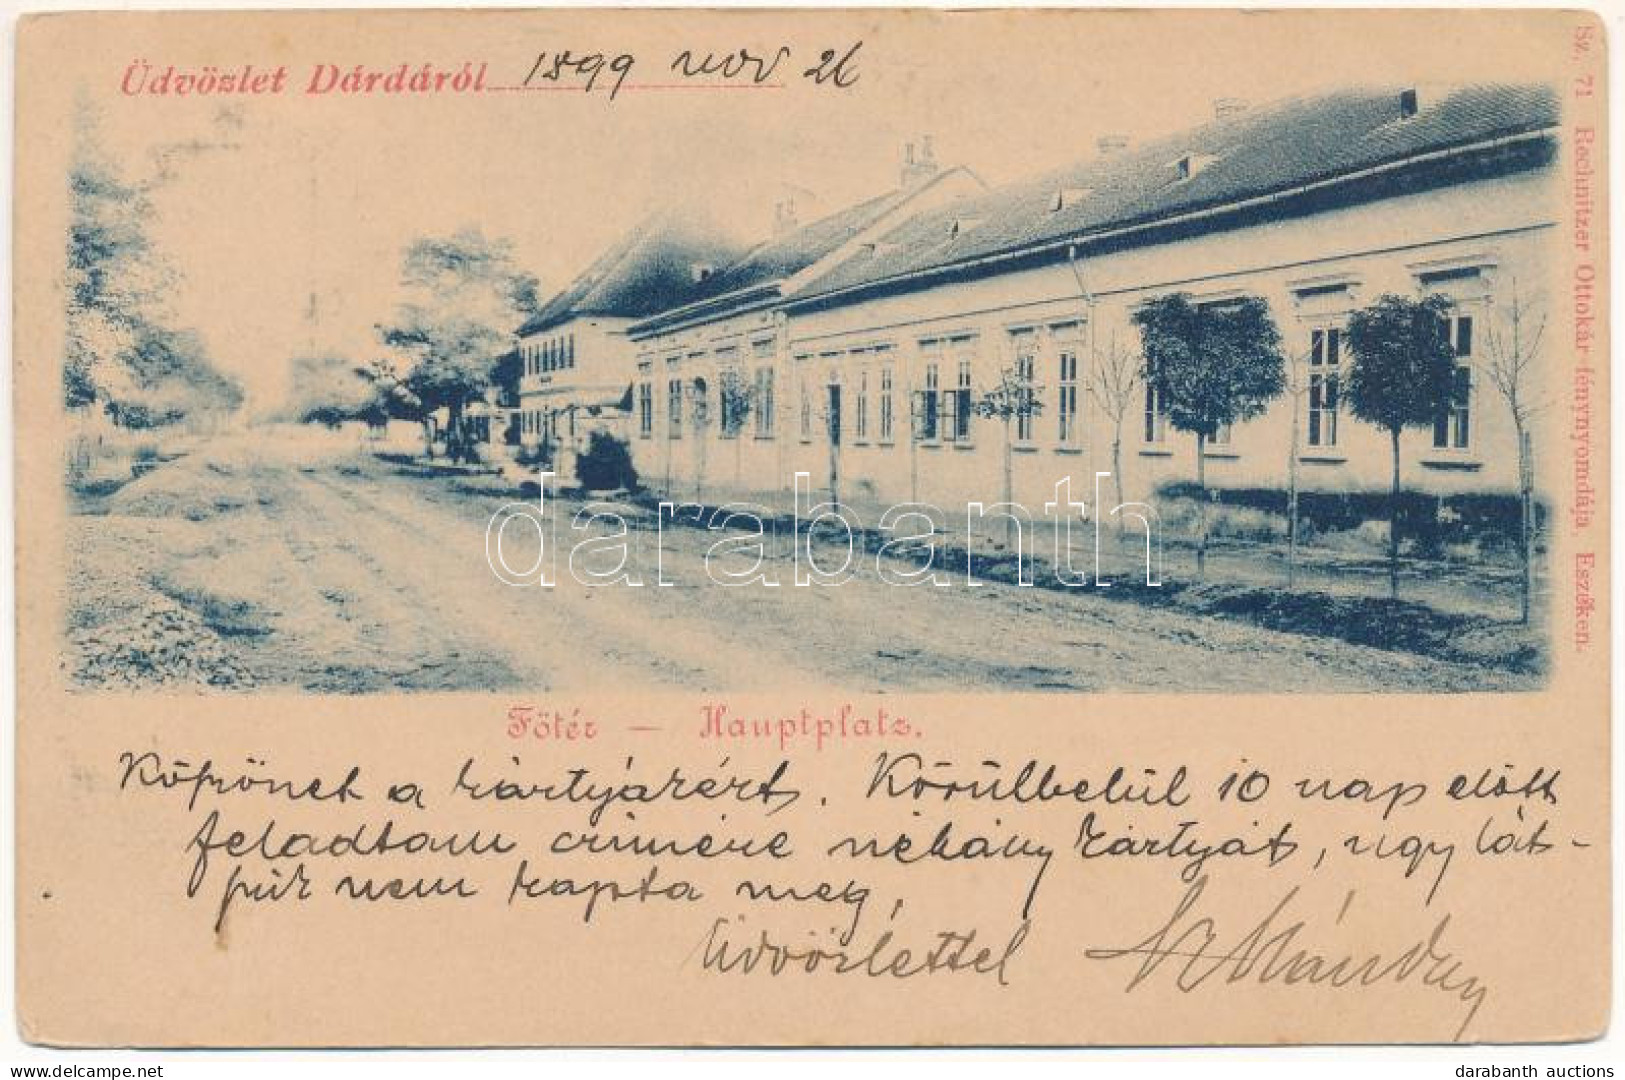 Üdvözlet Dárdáról 1899 nov 26
Sz. 71 Rechnitzer Ottokár fénynyomdája, Eszéken.
darabanth
Főtér — Hauptplatz.
Köszönet a kártyáért. Körülbelül 10 nap előtt
feladtam czimére néhány kártyát, úgy lát-
szik nem kapta meg,
Üdvözlettel
www.delcampe.net
darabanth auctions